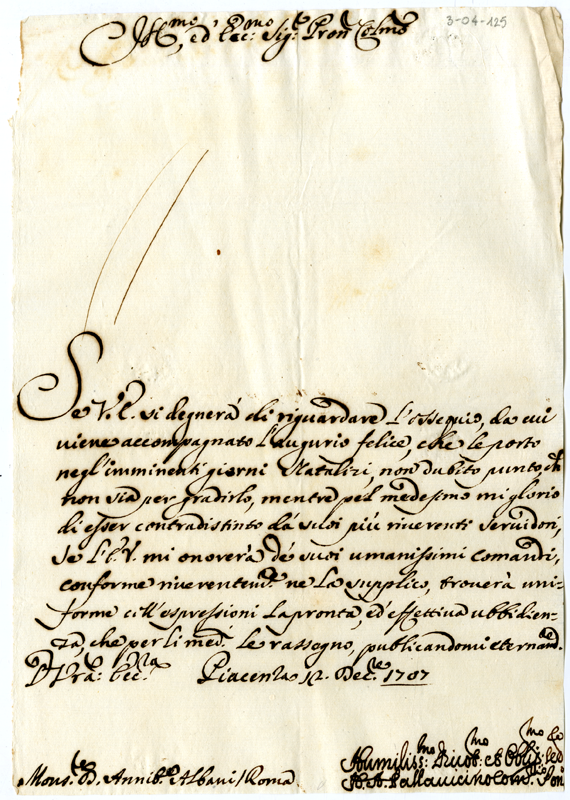 3-04-125
Ill.mo, ed Ecc:mo Sig:re Pron Colmo
Se V.E. si degnerà di riguardare l'ossequio, da cui
viene accompagnato l'augurio felice, che le porto
negl'imminenti giorni Natalizi, non dubito punto, ch
non sia per gradirlo, mentre pel medesimo mi glorio
di esser contradistinto dà suoi più riverenti servidori,
Se L'E.V. mi onorerà de suoi umanissimi comandi,
conforme riverentem.e ne La supplico, troverà uni-
forme all'espressioni La pronta, ed'effettiva ubbidien-
za, che per li med.i Le rassegno, publicandomi eternam.e
D Vra: Ecc.za Piacenza 12. Dec.e 1707
Humiliss:mo Divot:mo et Obblig:mo
Mons.re D. Annib.e Albani / Roma Pallavicino